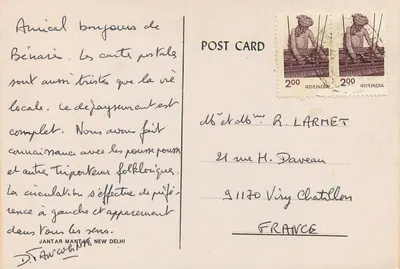 Amical bonjour de
Bénarès. Les cartes postales
sont aussi tristes que la vie
locale. Le dépaysement est
complet. Nous avons fait
connaissance avec les pousse pousse
et autres triporteurs folkloriques.
La circulation s'effectue de préfé-
rence à gauche et apparemment
dans tous les sens.
JANTAR MANTAR, NEW DELHI
POST CARD
2.00
भारत INDIA
2.00
भारत INDIA
Mr et Mme R. LARMET
21 rue H. Daveau
91170 Viry Chatillon
FRANCE